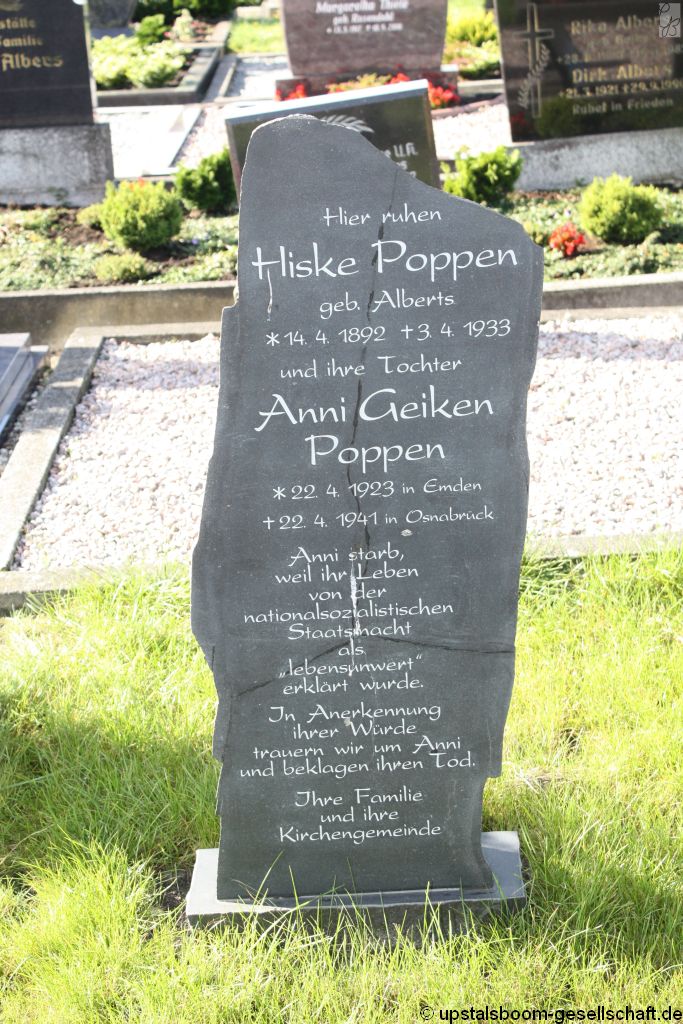 stätte
Familie
Albers
Margaretha Thiele
Rika Albers
Dirk Albers
*21.3.1921
Ruhet in Frieden
Hier ruhen
Hiske Poppen
geb. Alberts
*14. 4. 1892 +3. 4. 1933
und ihre Tochter
Anni Geiken
Poppen
*22. 4. 1923 in Emden
+22. 4. 1941 in Osnabrück
Anni starb,
weil ihr Leben
von der
nationalsozialistischen
Staatsmacht
als
„lebensunwert“
erklärt wurde.
In Anerkennung
ihrer Würde
trauern wir um Anni
und beklagen ihren Tod.
Ihre Familie
und ihre
Kirchengemeinde
© upstalsboom-gesellschaft.de